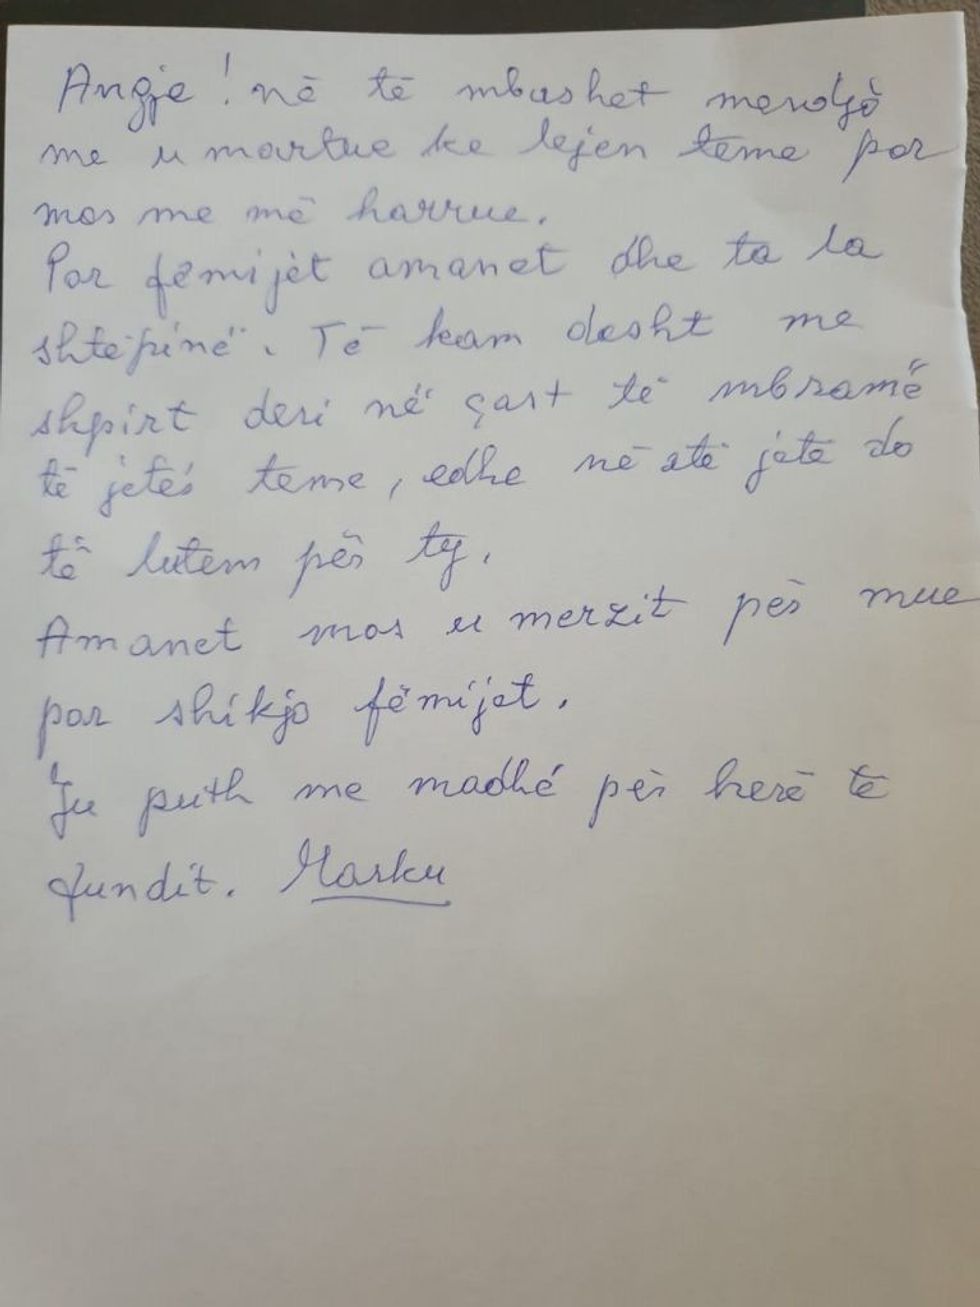 Angje! në të mbushet mendjò
me u martue ke lejen teme por
mos me më harrue.
Por fëmijët amanet dhe ta la
shtëpinë. Të kam desht me
shpirt deri në çast të mbramë
të jetës teme, edhe në atë jetë do
të lutem për ty.
Amanet mos u merzit për mue
por shikjo fëmijet.
Ju puth me madhé për herë të
fundit. Marku